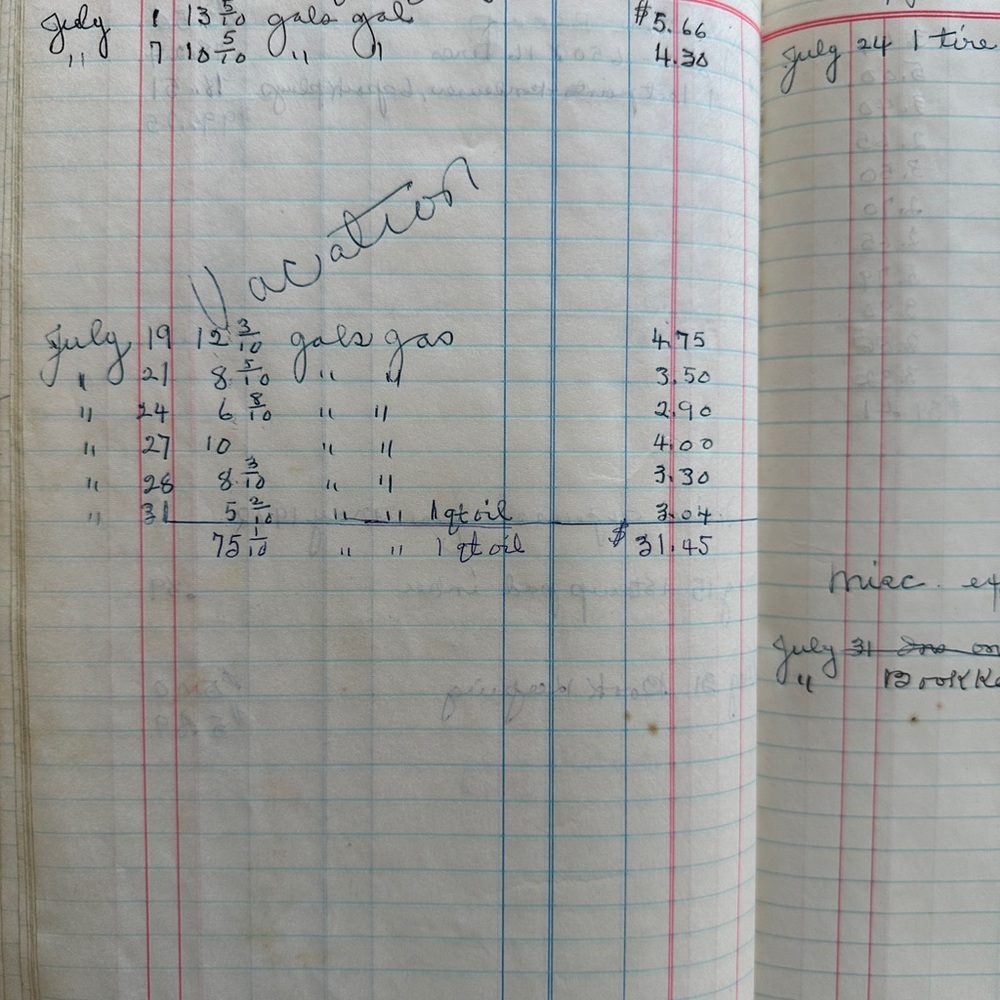 July 1 13 5/10 gals gal $5.66
" 7 10 5/10 " " 4.30
Vacation
July 19 12 3/10 gals gas 4.75
" 21 8 5/10 " " 3.50
" 24 6 8/10 " " 2.90
" 27 10 " " 4.00
" 28 8 3/10 " " 3.30
" 31 5 2/10 " " 1 qt oil 3.04
75 1/10 " " 1 qt oil $31.45
July 24 1 tire
Misc.
July 31
" BookKe